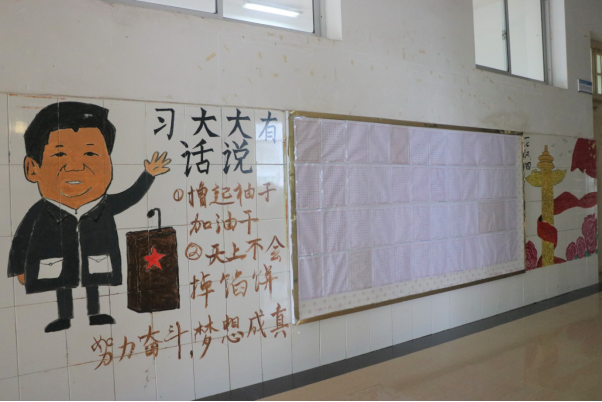 习大大有
话说
①撸起袖子
加油干
②天上不会
掉馅饼
努力奋斗,梦想成真